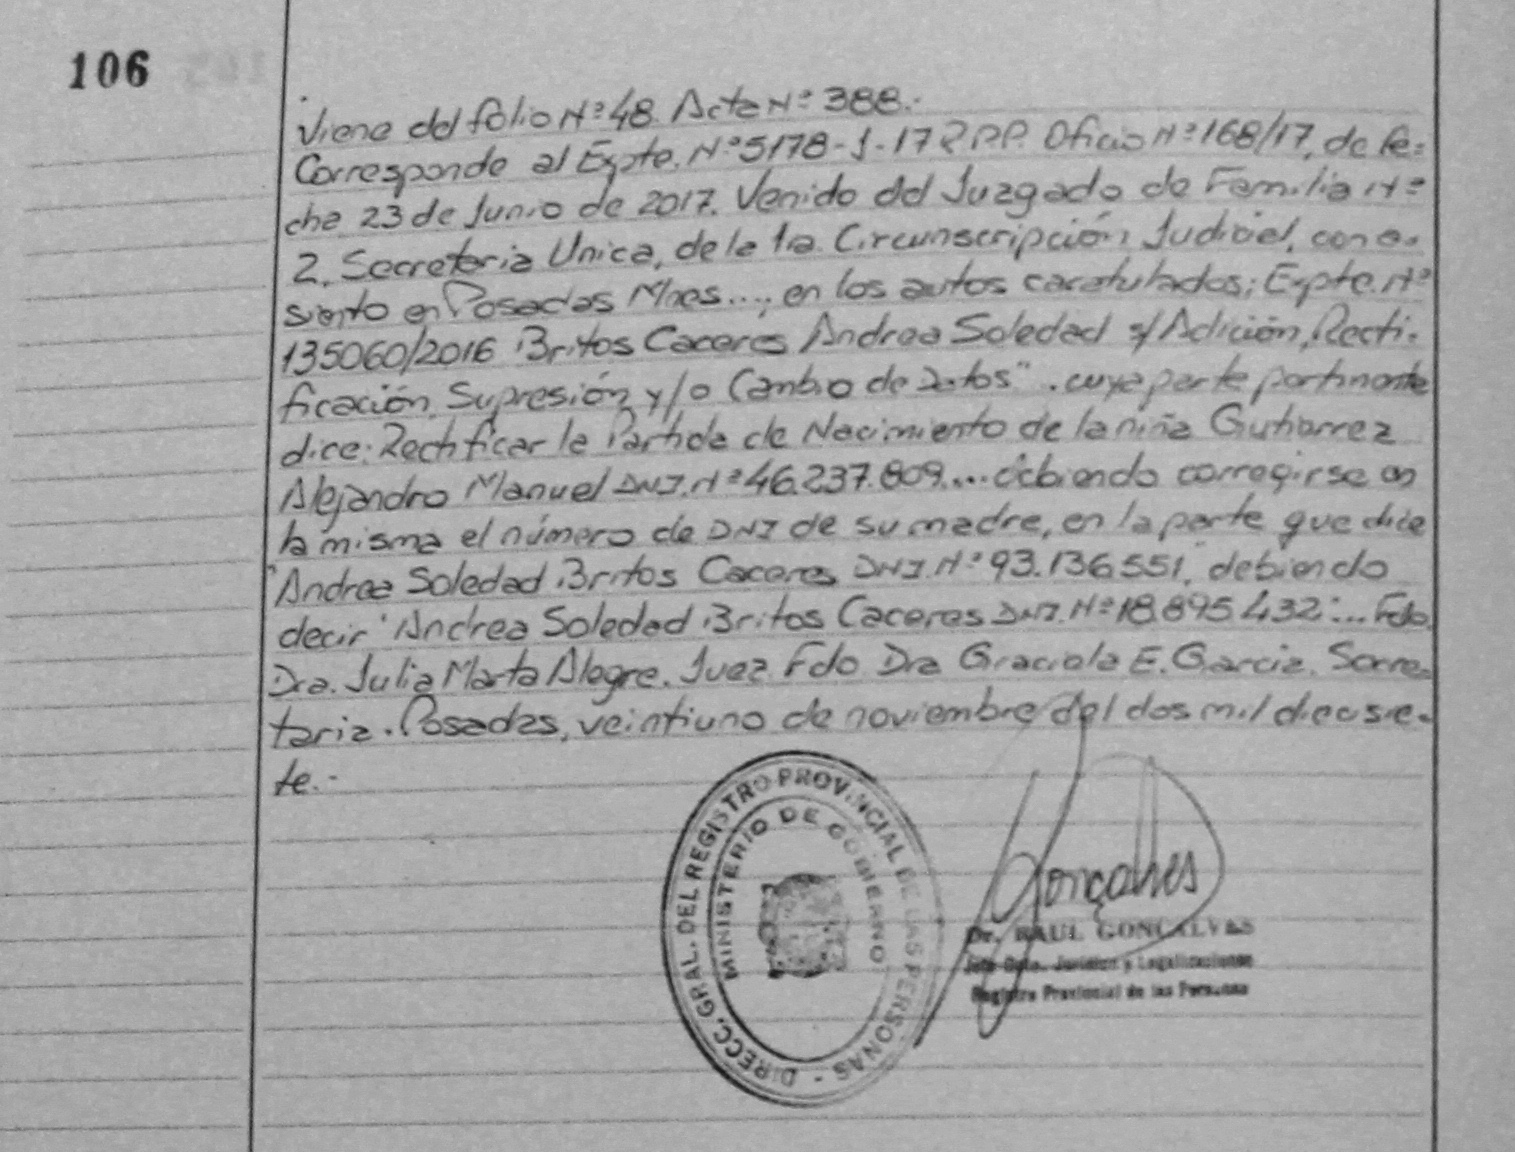 106
Viene del folio Nº 48. Acta Nº 388.-
Corresponde al Expte. Nº 5178-J-17 R.P.P. Oficio Nº 168/17, de fe=
cha 23 de Junio de 2017. Venido del Juzgado de Familia Nº
2, Secretaria Unica, de la 1ra. Circunscripción Judicial, con a-
siento en Posadas Mnes..., en los autos caratulados; Expte. Nº
135060/2016 Britos Caceres Andrea Soledad s/Adición, Recti-
ficación, Supresión y/o Cambio de Datos". cuya parte pertinente
dice: Rectificar la Partida de Nacimiento de la niña Gutierrez
Alejandro Manuel DNI. Nº 46.237.809.... debiendo corregirse en
la misma el número de DNI de su madre, en la parte que dice
"Andrea Soledad Britos Caceres DNI. Nº 93.136.551," debiendo
decir "Andrea Soledad Britos Caceres DNI. Nº 18.895.432"... Fdo.
Dra. Julia Marta Alegre. Juez. Fdo Dra Graciela E. Garcia. Secre-
taria. Posadas, veintiuno de noviembre del dos mil diecisie-
te.-
DIRECC. GRAL. DEL REGISTRO PROVINCIAL DE LAS PERSONAS -
MINISTERIO DE GOBIERNO
Gonçalves
Dr. RAUL GONÇALVES
Jefe Dpto. Jurídico y Legalizaciones
Registro Provincial de las Personas